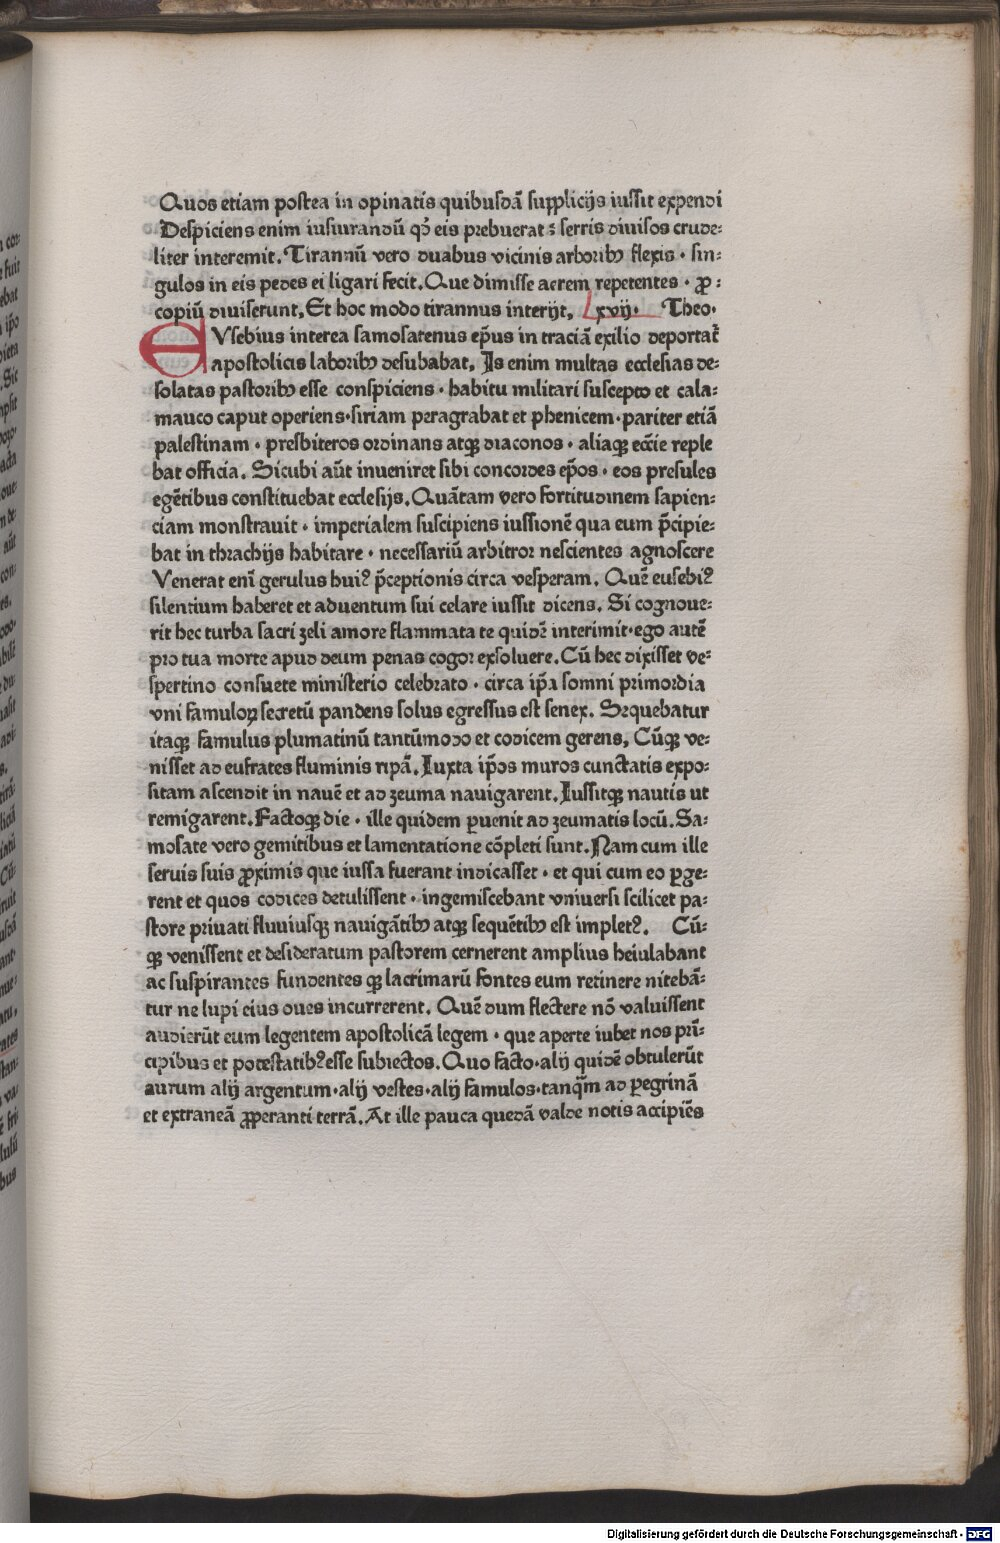 Quos etiam postea in opinatis quibusdã suppliciis iussit expendi
Despiciens enim iusiurandũ qđ eis prebuerat ⁊ serris diuisos crude⸗
liter interemit. Tirannũ vero duabus vicinis arboribꝫ flexis · sin⸗
gulos in eis pedes ei ligari fecit. Que dimisse aerem repetentes · ꝓ⸗
copiũ diuiserunt. Et hoc modo tirannus interijt. Lxvij· Theo·
EVsebius interea samosatenus ep̃us in traciã exilio deportat᷑
apostolicis laboribꝫ desudabat. Is enim multas ecclesias de⸗
solatas pastoribꝫ esse conspiciens · habitu militari suscepto et cala⸗
mauco caput operiens·siriam peragrabat et phenicem·pariter etiã
palestinam · presbiteros ordinans atqꝫ diaconos · aliaqꝫ ecc̃ie reple
bat officia. Sicubi aũt inueniret sibi concordes ep̃os · eos presules
egẽtibus constituebat ecclesijs. Quãtam vero fortitudinem sapien⸗
ciam monstrauit · imperialem suscipiens iussionẽ qua eum p̃cipie⸗
bat in thrachijs habitare · necessariũ arbitror nescientes agnoscere
Venerat enĩ gerulus huiꝰ p̃ceptionis circa vesperam. Quẽ eusebiꝰ
silentium haberet et aduentum sui celare iussit dicens. Si cognoue⸗
rit hec turba sacri zeli amore flammata te quidẽ interimit·ego autẽ
pro tua morte apud deum penas cogor exsoluere. Cũ hec dixisset ve⸗
spertino consuete ministerio celebrato · circa ip̃a somni primordia
vni famuloꝝ secretũ pandens solus egressus est senex. Sequebatur
itaqꝫ famulus plumatinũ tantũmodo et codicem gerens. Cũqꝫ ve⸗
nisset ad eufrates fluminis ripã. Iuxta ip̃os muros cunctatis expo⸗
sitam ascendit in nauẽ et ad zeuma nauigarent. Iussitqꝫ nautis ut
remigarent. Factoqꝫ die · ille quidem ꝑuenit ad zeumatis locũ. Sa⸗
mosate vero gemitibus et lamentatione cõpleti sunt. Nam cum ille
seruis suis ꝓximis que iussa fuerant indicasset · et qui cum eo ꝑge⸗
rent et quos codices detulissent · ingemiscebant vniuersi scilicet pa⸗
store priuati fluuiusqꝫ nauigãtibꝫ atqꝫ sequẽtibꝫ est impletꝰ. Cũ⸗
qꝫ venissent et desideratum pastorem cernerent amplius heiulabant
ac suspirantes fundentes qꝫ lacrimarũ fontes eum retinere nitebã⸗
tur ne lupi eius oues incurrerent. Quẽ dum flectere nõ valuissent
audierũt eum legentem apostolicã legem · que aperte iubet nos prĩ⸗
cipibus et potestatibꝰ esse subiectos. Quo facto·alij quidẽ obtulerũt
aurum alij argentum·alij vestes·alij famulos·tanqm̃ ad ꝑegrinã
et extraneã ꝓperanti terrã. At ille pauca quedã valde notis accipiẽs
Digitalisierung gefördert durch die Deutsche Forschungsgemeinschaft · DFG